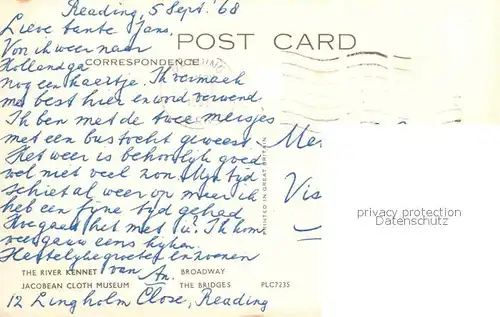 Reading, 5 Sept. '68
Lieve tante Jans,
Voor ik weer naar
POST CARD
Holland ga
CORRESPONDENCE
nog een kaartje. Ik vermaek
me best hier en word verwend.
Ik ben met de twee meisjes
met een bus tocht geweest.
Het weer is behoorlijk goed
wel met veel zon. Mijn tijd
schiet al weer op maar ik
heb een fijne tijd gehad
Hoe gaat het met u? Ik kom
weer gauw eens kijken.
Hartelijke groeten en zoenen
van An.
Me
Vis
PRINTED IN GREAT BRITAIN
privacy protection
Datenschutz
THE RIVER KENNET BROADWAY
JACOBEAN CLOTH MUSEUM THE BRIDGES PLC7235
12 Lingholm Close, Reading